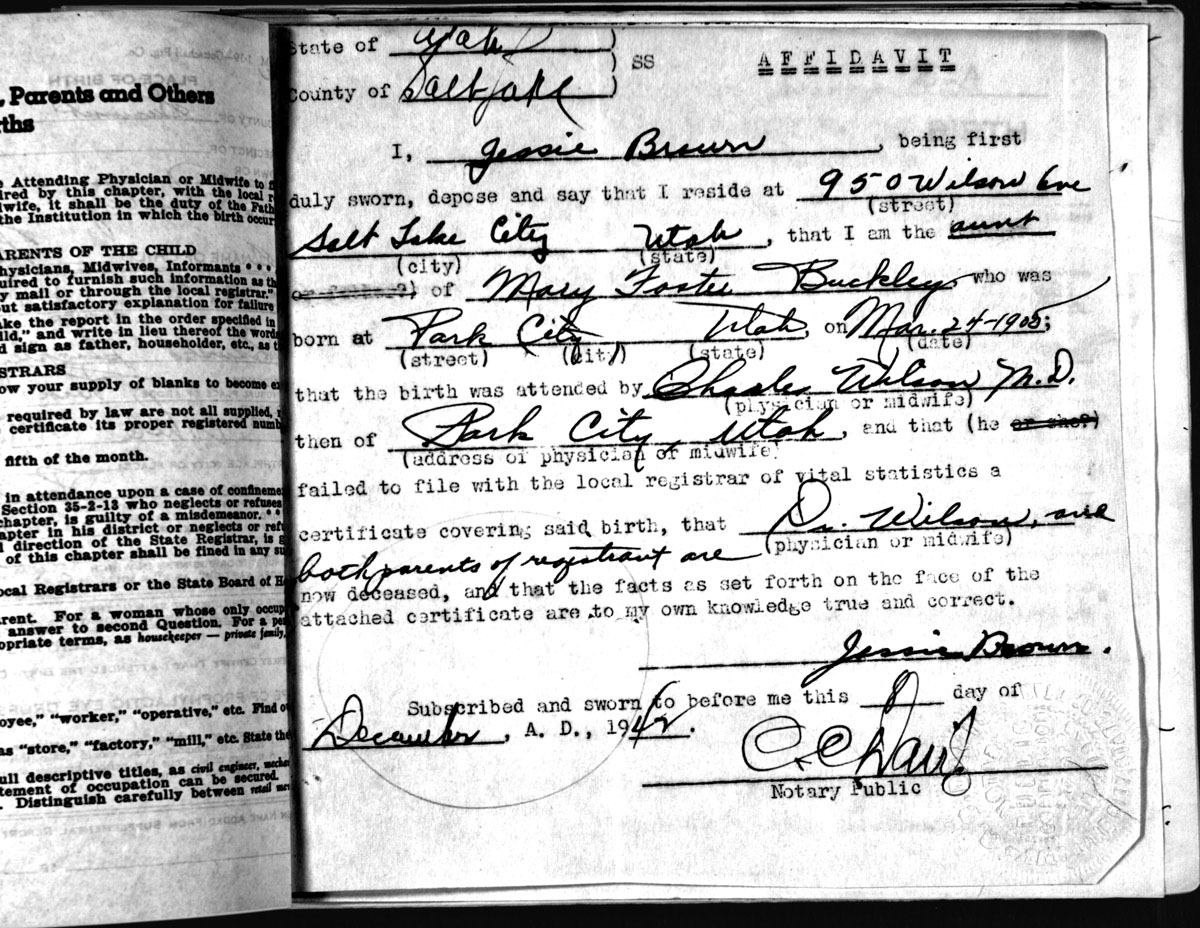 , Parents and Others
rths
Attending Physician or Midwife to
ired by this chapter, with the local
dwife, it shall be the duty of the
the Institution in which the birth occur
ARENTS OF THE CHILD
hysicians, Midwives, Informants * * *
uired to furnish such information as
y mail or through the local registrar."
out satisfactory explanation for failure
ake the report in the order specified in
ild," and write in lieu thereof the
d sign as father, householder, etc., as
STRARS
ow your supply of blanks to become
required by law are not all supplied,
certificate its proper registered numb
fifth of the month.
in attendance upon a case of confineme
Section 35-2-13 who neglects or refuses
chapter, is guilty of a misdemeanor. * *
apter in his district or neglects or
l direction of the State Registrar, is
of this chapter shall be fined in any
ocal Registrars or the State Board of
rent. For a woman whose only occup
answer to second Question. For a
opriate terms, as housekeeper — private family,
oyee," "worker," "operative," etc. Find
as "store," "factory," "mill," etc. State the
ull descriptive titles, as civil engineer,
tement of occupation can be secured.
. Distinguish carefully between retail
State of Utah )
) SS AFFIDAVIT
County of Salt Lake )
I, Jessie Brown, being first
duly sworn, depose and say that I reside at 950 Wilson Ave
(street)
Salt Lake City Utah, that I am the aunt
(city) (state)
or father?) of Mary Foster Buckley who was
born at Park City Utah, on Mar. 24-1905;
(street) (city) (state) (date)
that the birth was attended by Charles Wilson M.D.
(physician or midwife)
then of Park City, Utah, and that (he or she?)
(address of physician or midwife)
failed to file with the local registrar of vital statistics a
certificate covering said birth, that Dr. Wilson, and
(physician or midwife)
both parents of registrant are
now deceased, and that the facts as set forth on the face of the
attached certificate are to my own knowledge true and correct.
Jessie Brown.
Subscribed and sworn to before me this day of
December, A. D., 1942.
Notary Public